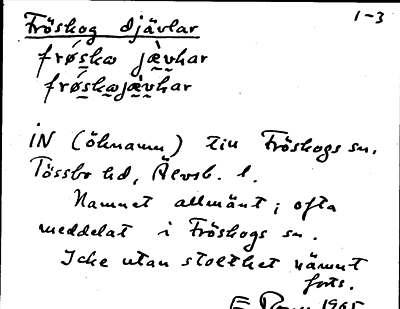 1-3
Fröskog djävlar
frǿskɷ jæ̀vɫar
frǿskɷjæ̀vɫar
IN (öknamn) till Fröskogs sn.
Tössbo hd, Älvsb. l.
Namnet allmänt; ofta
meddelat i Fröskogs sn.
Icke utan stolthet nämnt
forts.
1965